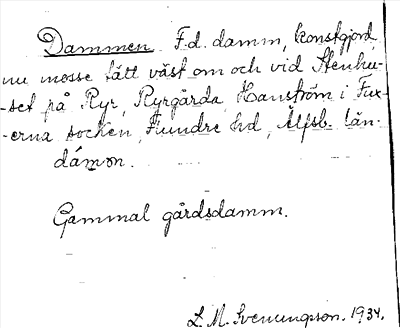 Dammen F.d. damm, konstgjord,
nu mosse tätt väst om och vid Stenhu-
-set på Ryr, Ryrgårda, Hanström i Fux-
-erna socken, Flundre hd, Älfsb. län.
dámən.
Gammal gårdsdamm.
L. M. Svenungson. 1934.